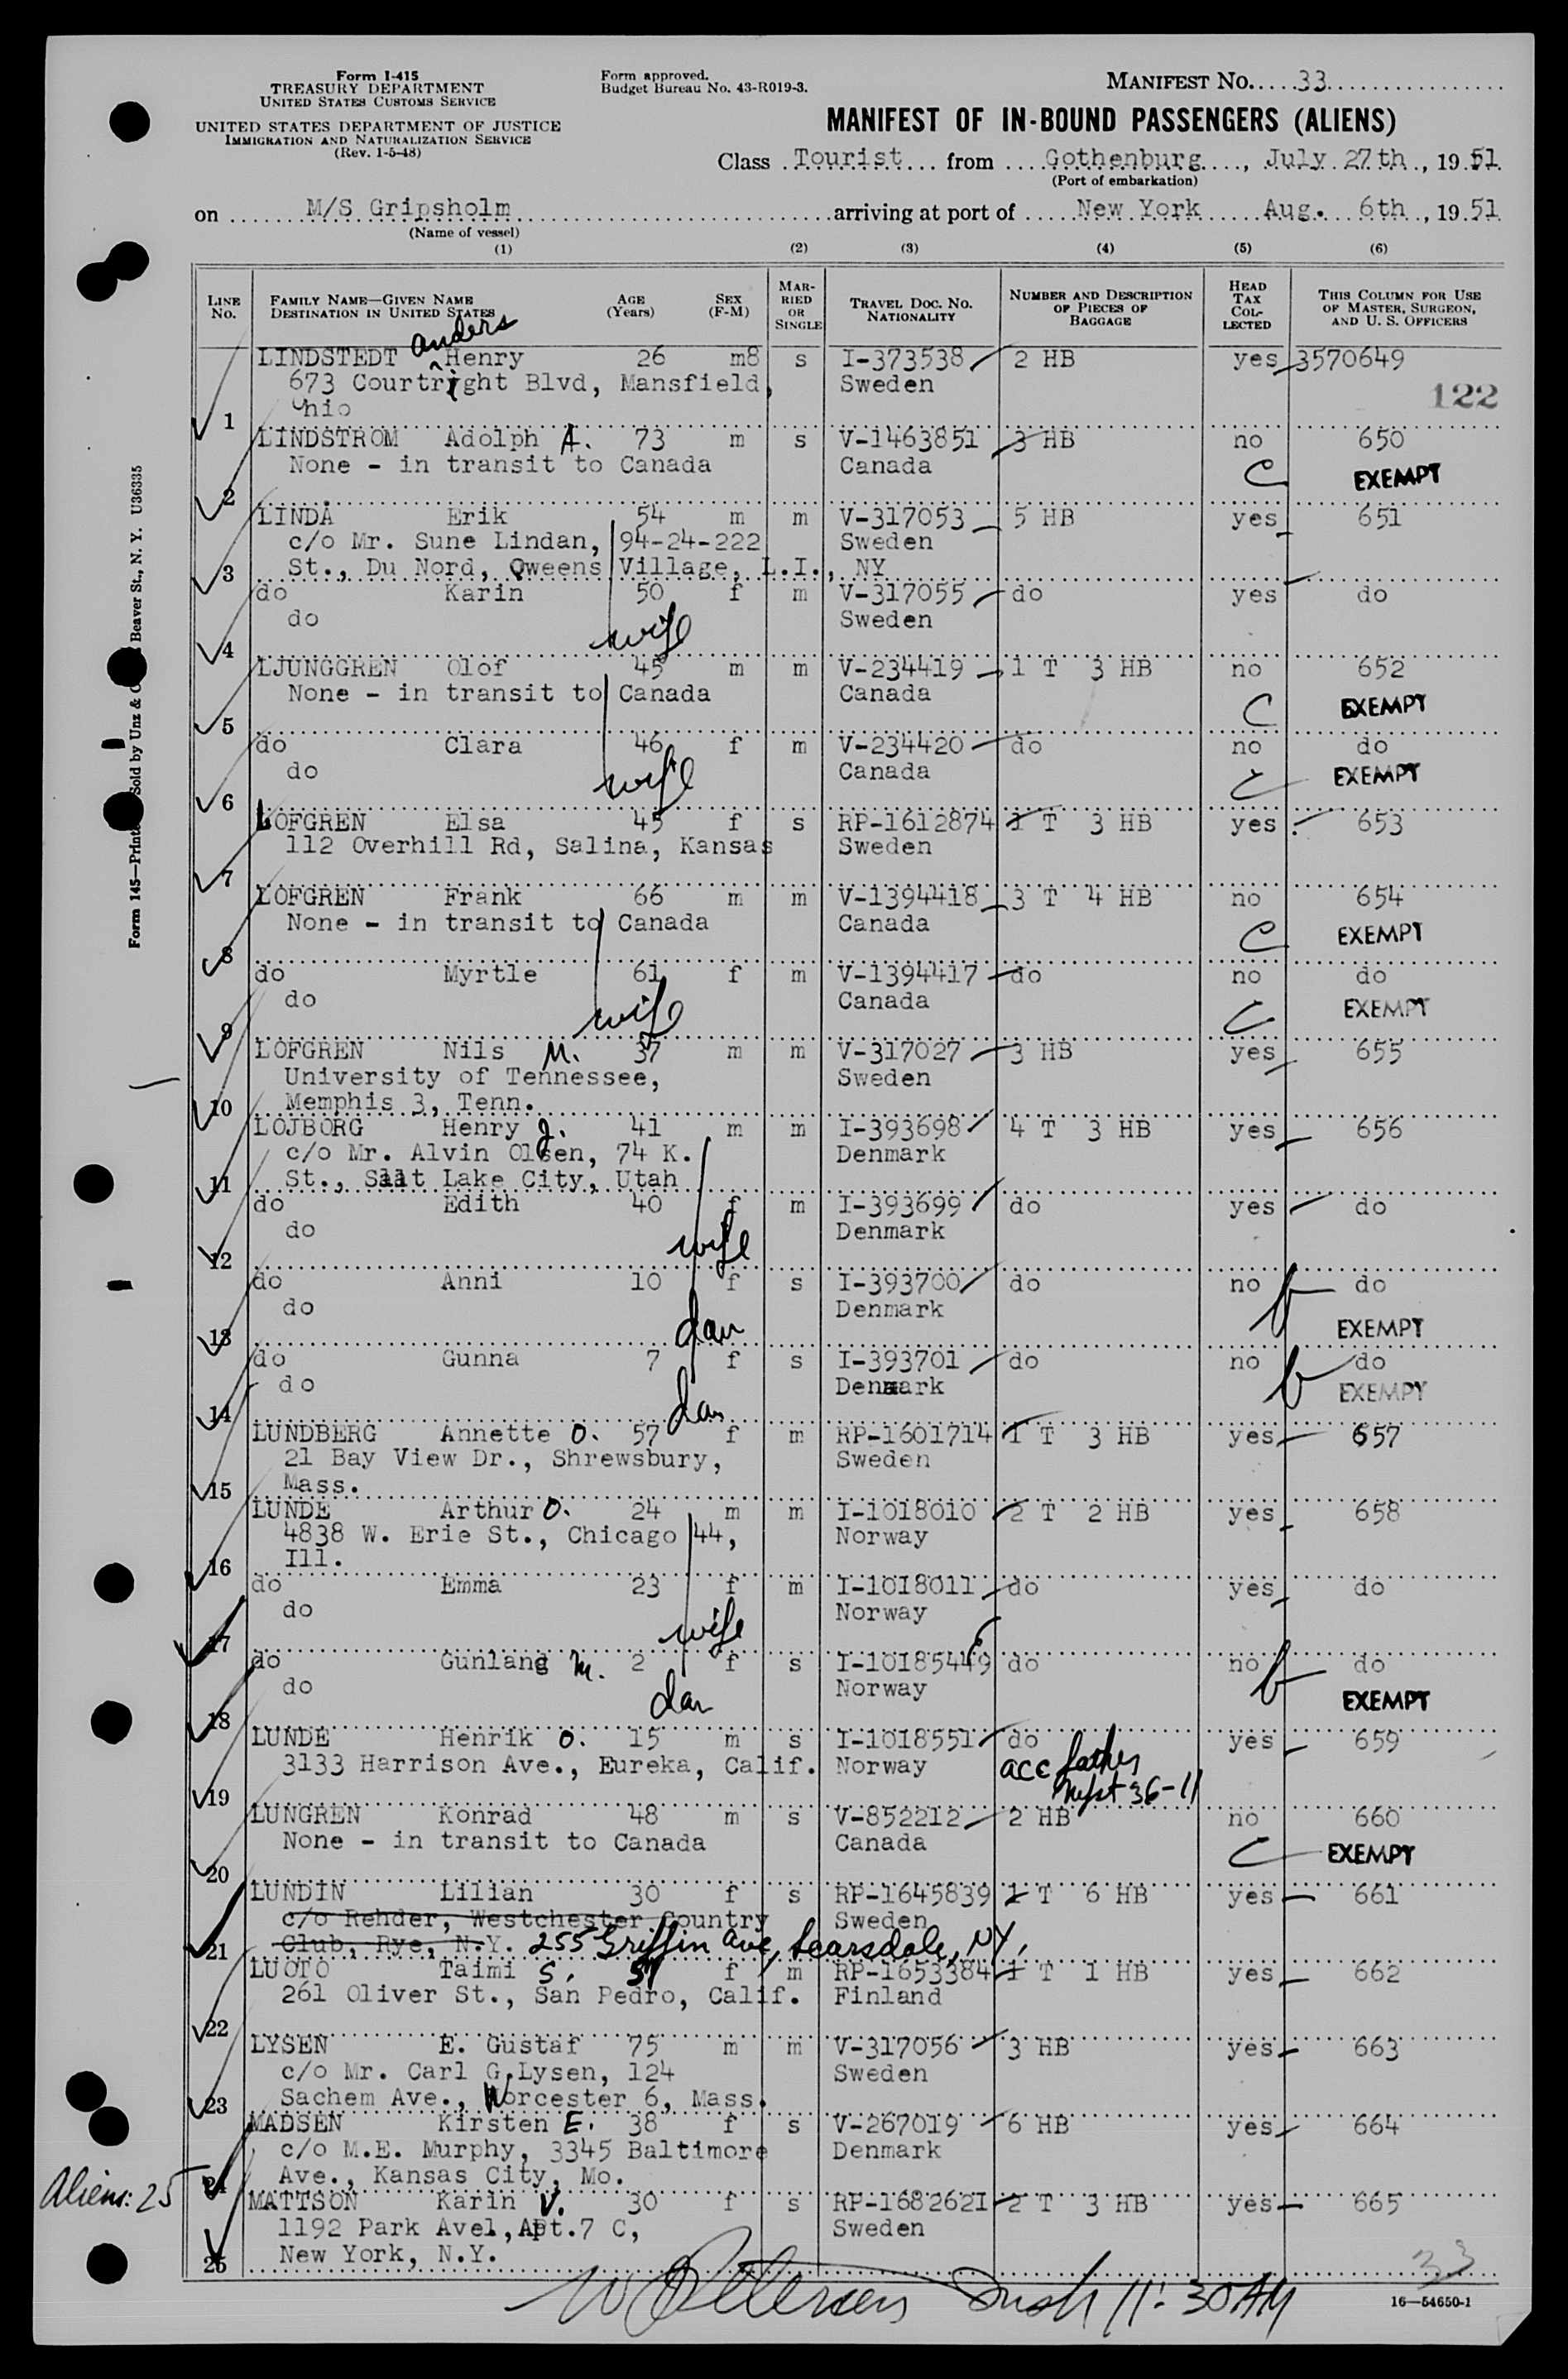 Form I-415
TREASURY DEPARTMENT
UNITED STATES CUSTOMS SERVICE
UNITED STATES DEPARTMENT OF JUSTICE
IMMIGRATION AND NATURALIZATION SERVICE
(Rev. 1-5-48)
Form approved.
Budget Bureau No. 43-R019-3.
MANIFEST NO. 33
MANIFEST OF IN-BOUND PASSENGERS (ALIENS)
Class Tourist from Gothenburg, July 27th, 1951
(Port of embarkation)
on M/S Gripsholm arriving at port of New York Aug. 6th, 1951
(Name of vessel)
(1) (2) (3) (4) (5) (6)
LINE NO. FAMILY NAME—GIVEN NAME DESTINATION IN UNITED STATES AGE (Years) SEX (F-M) MARRIED OR SINGLE TRAVEL DOC. NO. NATIONALITY NUMBER AND DESCRIPTION OF PIECES OF BAGGAGE HEAD TAX COLLECTED THIS COLUMN FOR USE OF MASTER, SURGEON, AND U. S. OFFICERS
anders
LINDSTEDT Henry 26 m8 s I-373538 2 HB yes 3570649
673 Courtright Blvd, Mansfield, Sweden 122
Ohio
1
LINDSTROM Adolph A. 73 m s V-1463851 3 HB no 650
None - in transit to Canada Canada C EXEMPT
2
LINDÅ Erik 54 m m V-317053 5 HB yes 651
c/o Mr. Sune Lindan, 94-24-222 Sweden
3 St., Du Nord, Qweens Village, L.I., NY
do Karin 50 f m V-317055 do yes do
do wife Sweden
4
LJUNGGREN Olof 45 m m V-234419 1 T 3 HB no 652
None - in transit to Canada Canada C EXEMPT
5
do Clara 46 f m V-234420 do no do
do wife Canada C EXEMPT
6
LOFGREN Elsa 45 f s RP-1612874 1 T 3 HB yes 653
112 Overhill Rd, Salina, Kansas Sweden
7
LOFGREN Frank 66 m m V-1394418 3 T 4 HB no 654
None - in transit to Canada Canada C EXEMPT
8
do Myrtle 61 f m V-1394417 do no do
do wife Canada C EXEMPT
9
LOFGREN Nils M. 37 m m V-317027 3 HB yes 655
University of Tennessee, Sweden
10 Memphis 3, Tenn.
LOJBORG Henry J. 41 m m I-393698 4 T 3 HB yes 656
c/o Mr. Alvin Olsen, 74 K. Denmark
11 St., Salt Lake City, Utah
do Edith 40 f m I-393699 do yes do
do wife Denmark
12
do Anni 10 f s I-393700 do no b do
do dau Denmark EXEMPT
13
do Gunna 7 f s I-393701 do no b do
do dau Denmark EXEMPT
14
LUNDBERG Annette O. 57 f m RP-1601714 1 T 3 HB yes 657
21 Bay View Dr., Shrewsbury, Sweden
15 Mass.
LUNDE Arthur O. 24 m m I-1018010 2 T 2 HB yes 658
4838 W. Erie St., Chicago 44, Norway
16 Ill.
do Emma 23 f m I-1018011 do yes do
do wife Norway
17
do Gunlang M. 2 f s do no b do
do dau Norway EXEMPT
18
LUNDE Henrik O. 15 m s I-1018551 do yes 659
3133 Harrison Ave., Eureka, Calif. Norway acc father
19 36-11
LUNGREN Konrad 48 m s V-852212 2 HB no 660
None - in transit to Canada Canada C EXEMPT
20
LUNDIN Lilian 30 f s RP-1645839 1 T 6 HB yes 661
c/o Rehder, Westchester Country Sweden
21 Club, Rye, N.Y. 255 Griffin Ave, Scarsdale, NY.
LUOTO Taimi S. 51 f m RP-1653384 1 T 1 HB yes 662
261 Oliver St., San Pedro, Calif. Finland
22
LYSEN E. Gustaf 75 m m V-317056 3 HB yes 663
c/o Mr. Carl G.Lysen, 124 Sweden
23 Sachem Ave., Worcester 6, Mass.
MADSEN Kirsten E. 38 f s V-267019 6 HB yes 664
c/o M.E. Murphy, 3345 Baltimore Denmark
24 Ave., Kansas City, Mo.
Aliens: 25
MATTSON Karin V. 30 f s RP-1682621 2 T 3 HB yes 665
1192 Park Avel, Apt.7 C, Sweden
25 New York, N.Y.
33
11:30AM
16—54650-1
Form 145—Printed Sold by Unz & C Beaver St., N. Y. U36335